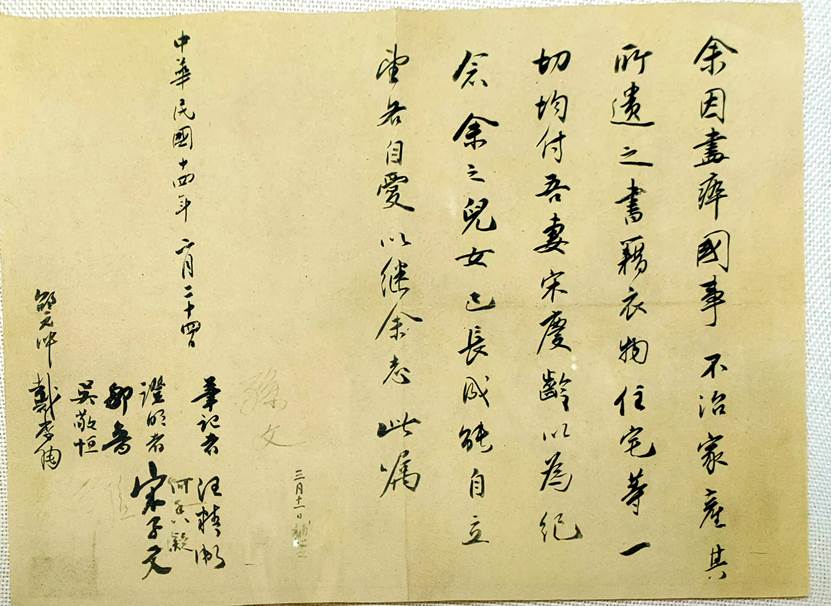 余因盡瘁國事不治家產其
所遺之書籍衣物住宅等一
切均付吾妻宋慶齡以為紀
念余之兒女已長成能自立
望各自愛以继余志此嘱
三月十一日補簽
孫文
中華民國十四年二月二十四日
筆記者 汪精衛
何香凝
證明者 宋子文
鄒魯
吳敬恒
戴季陶
邵元冲